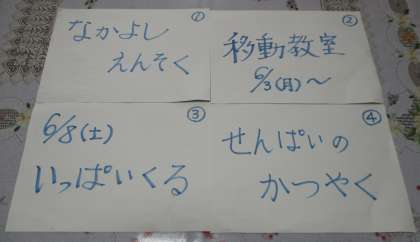 ①
なかよし
えんそく
②
移動教室
6/3(月)～
③
6/8(土)
いっぱいくる
④
せんぱいの
かつやく